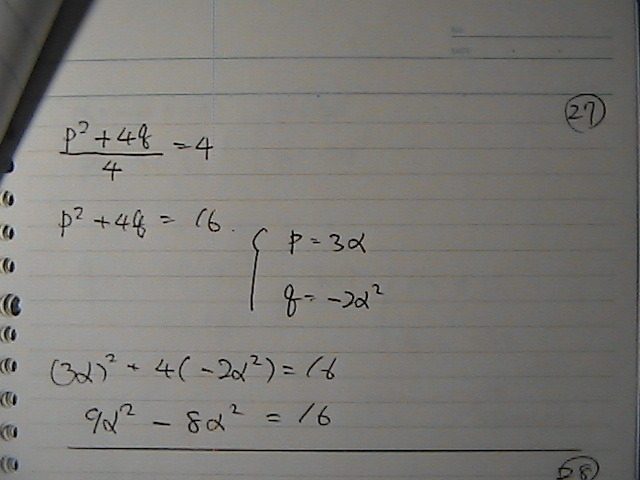 ㉗
(p²+4q)/4 = 4
p²+4q = 16.
p = 3α
q = -2α²
(3α)² + 4(-2α²) = 16
9α² - 8α² = 16